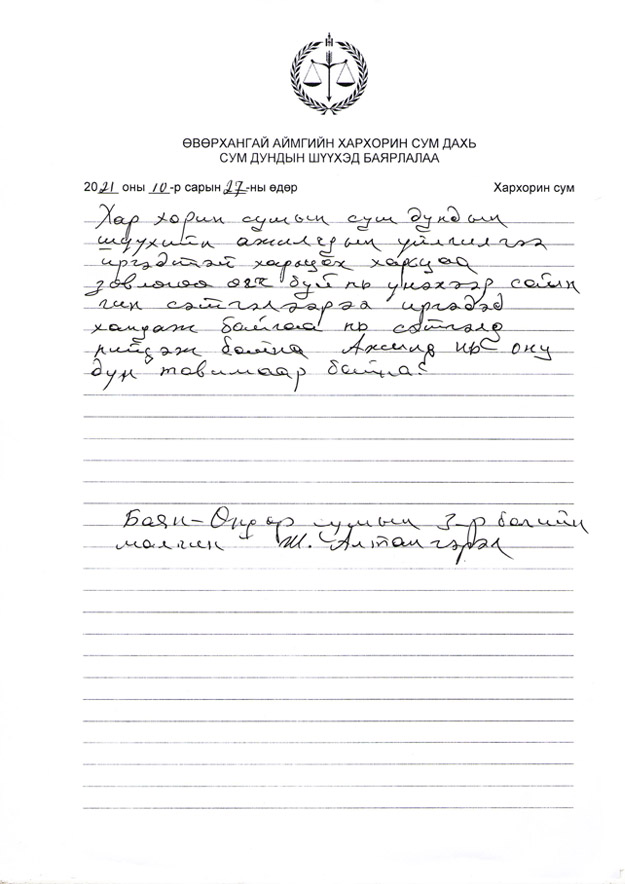 ӨВӨРХАНГАЙ АЙМГИЙН ХАРХОРИН СУМ ДАХЬ
СУМ ДУНДЫН ШҮҮХЭД БАЯРЛАЛАА
2021 оны 10-р сарын 27-ны өдөр Хархорин сум
Хар хорин сумын сум дундын
шүүхийн ажилчдын үйлчилгээ
иргэдтэй харьцах харьцаа
зөвлөгөө өгч буй нь үнэхээр сайн
чин сэтгэлээрээ иргэдэд
хандаж байгаа нь сэтгэлд
нийцэж байна Ажилд нь өнү
дүн тавимаар байна.
Баян-Өндөр сумын 3-р багийн
малчин Ж. Алтангэрэл